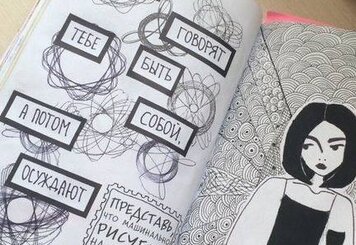 ТЕБЕ
ГОВОРЯТ
БЫТЬ
СОБОЙ,
А ПОТОМ
ОСУЖДАЮТ
ПРЕДСТАВЬ
ЧТО МАШИНАЛЬНО
РИСУЕ
НА